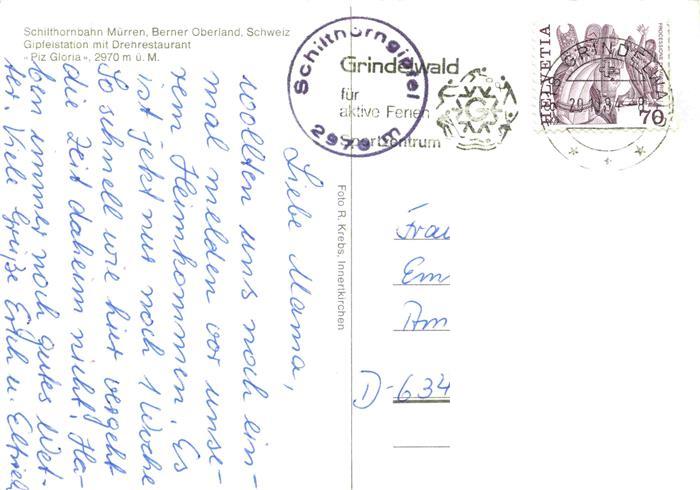 Schilthornbahn Mürren, Berner Oberland, Schweiz
Gipfelstation mit Drehrestaurant
«Piz Gloria», 2970 m ü. M.
Liebe Mama,
wollten uns noch ein-
mal melden vor unse-
rem Heimkommen. Es
ist jetzt nur noch 1 Woche
So schnell wie hier vergeht
die Zeit daheim nicht! Ha-
ben immer noch gutes Wet-
ter. Viele Grüße Erich u.
Foto R. Krebs, Innertkirchen
Schilthorngipfel
2970 m
Grindelwald
für
aktive Ferien
Sportzentrum
HELVETIA
70
GRINDELWALD
Frau
Em
Am
D-634